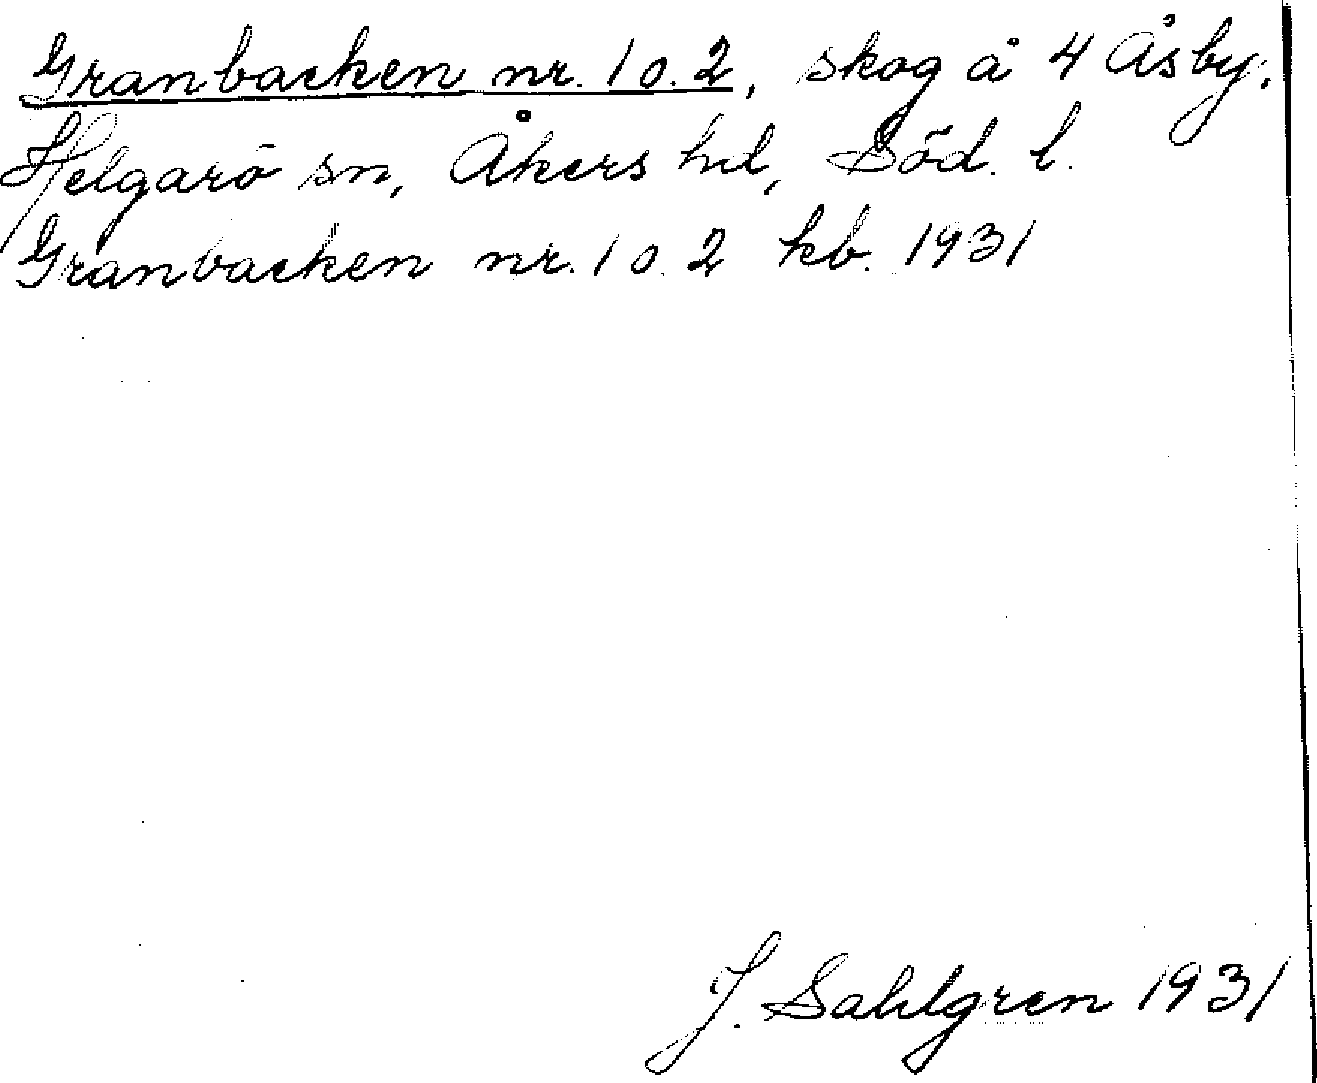 Granbacken nr. 1 o. 2, skog å 4 Åsby,
Helgarö sn, Åkers hd, Söd. l.
Granbacken nr. 1 o. 2 kb. 1931
J. Sahlgren 1931